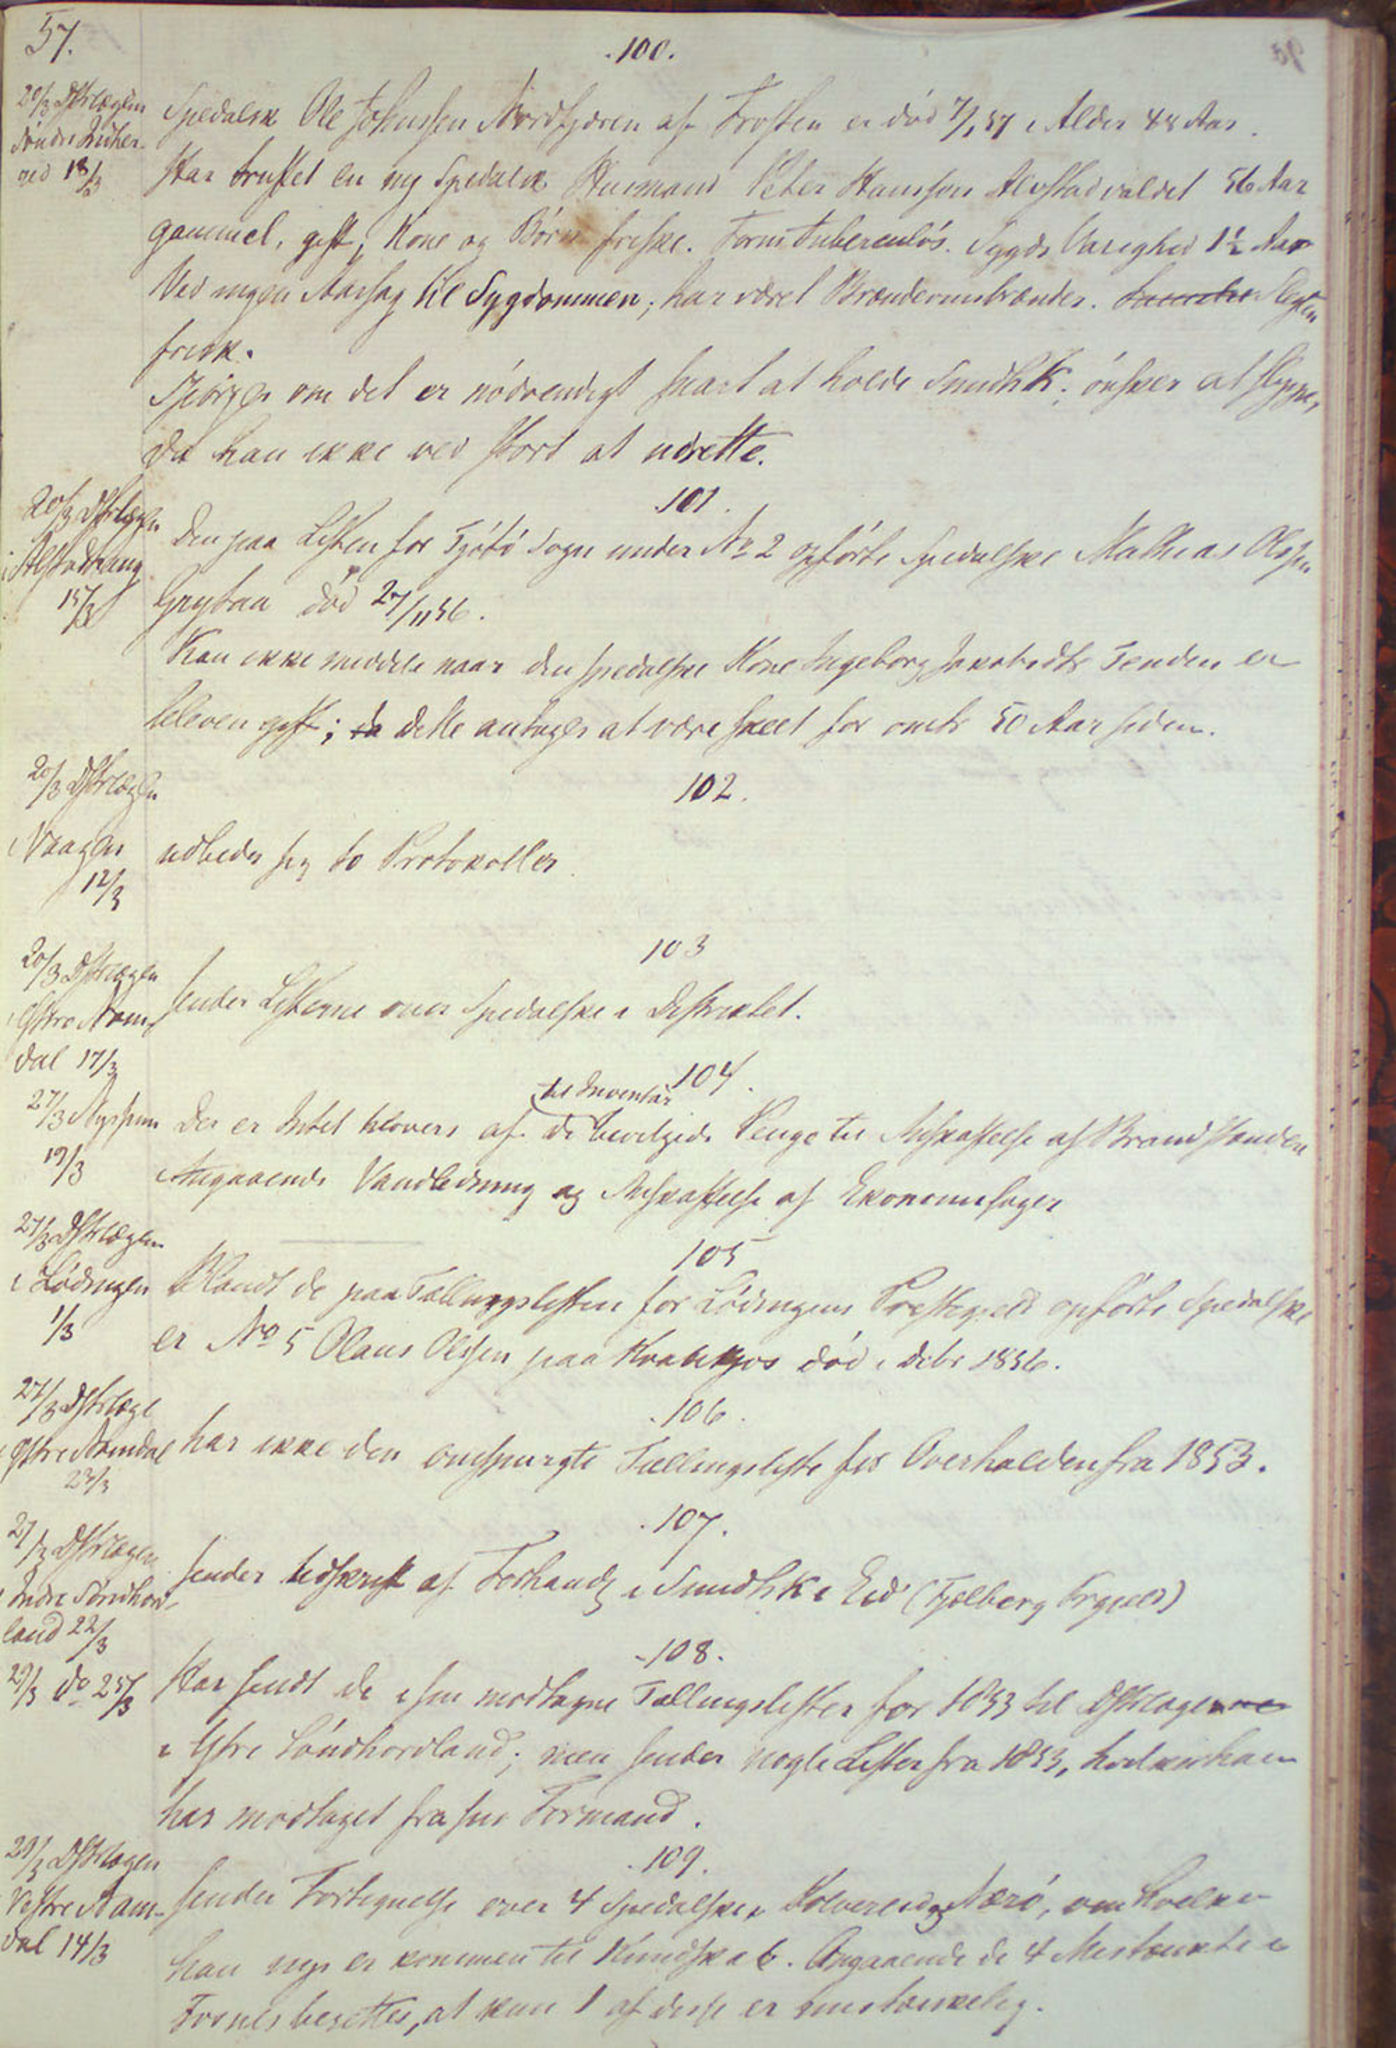 57.
.100.
20/3 Dstrlægen
Søndre Indher-
red 18/3
Spedalsk Ole Johnssen Nordfjæren af Frosten er død 7/1 57 i Alder 48 Aar.
Har truffet en ny Spedalsk Husmand Peter Hansson Alvstadvaldet 56 Aar
gammel, gift, Kone og Børn friske. Form tuberculøs. Sygds Varighed 1½ Aar
Ved ingen Aarsag til Sygdommen; har været Brændevinsbrænder. Slægten
frisk.
Spørger om det er nødvendigt snart at holde SundhK; ønsker at slippe,
da han ikke ved stort at udrette.
101.
20/3 Dstrlægen
i Alstadhaug
15/3
Den paa Listen for Tjøtø Sogn under No 2 opførte Spedalske Mathias Olssen
Grytaa død 27/11 56.
Kan ikke meddele naar den spedalske Kone Ingeborg Jakobsdtr Tenden er
bleven gift; da dette antages at være skeet for omtr 50 Aar siden.
102.
20/3 Dstrlægen
i Vaagen
12/3
udbeder sig to Protokoller.
103
20/3 Dstrlægen
i Østre Nam-
dal 17/3
sender Listerne over Spedalske i Distriktet.
104.
27/3
19/3
til Inventar
Der er Intet tilovers af de bevilgede Penge til Anskaffelse af Brandspande
Angaaende Vandledning og Anskaffelse af Ekonomisager
105
27/3 Dstrlægen
i Lødingen
1/3
Blandt de paa Tællingslisten for Lødingens Prestegjeld opførte Spedalske
er No 5 Olaus Olssen paa død i Debr 1856.
.106.
27/3 Dstrlæge
i Østre Namdal
23/3
har ikke den omspurgte Tællingsliste for Overhalden fra 1853.
.107.
27/3 Dstrlægen
i Indre Søndhord-
land 22/3
sender Udskrift af Forhandlg i SundhK i Eid (Fjelberg Prgjeld)
.108.
29/3 do 25/3
Har sendt de i sin modtagne Tællingslister for 1853 til Dstrlægen
i Ytre Søndhordland; men sender nogle Lister fra 1853, hvilke han
har modtaget fra sin Formand.
.109.
29/3 Dstrlægen
Vestre Nam-
dal 14/3
sender Fortegnelse over 4 Spedalske i Kolvereid og Nærø, om hvilke
han nys er kommen til Kundskab. Angaaende de 4 Mistænkte i
Fosnes berettes, at kun 1 af disse er mistænkelig.